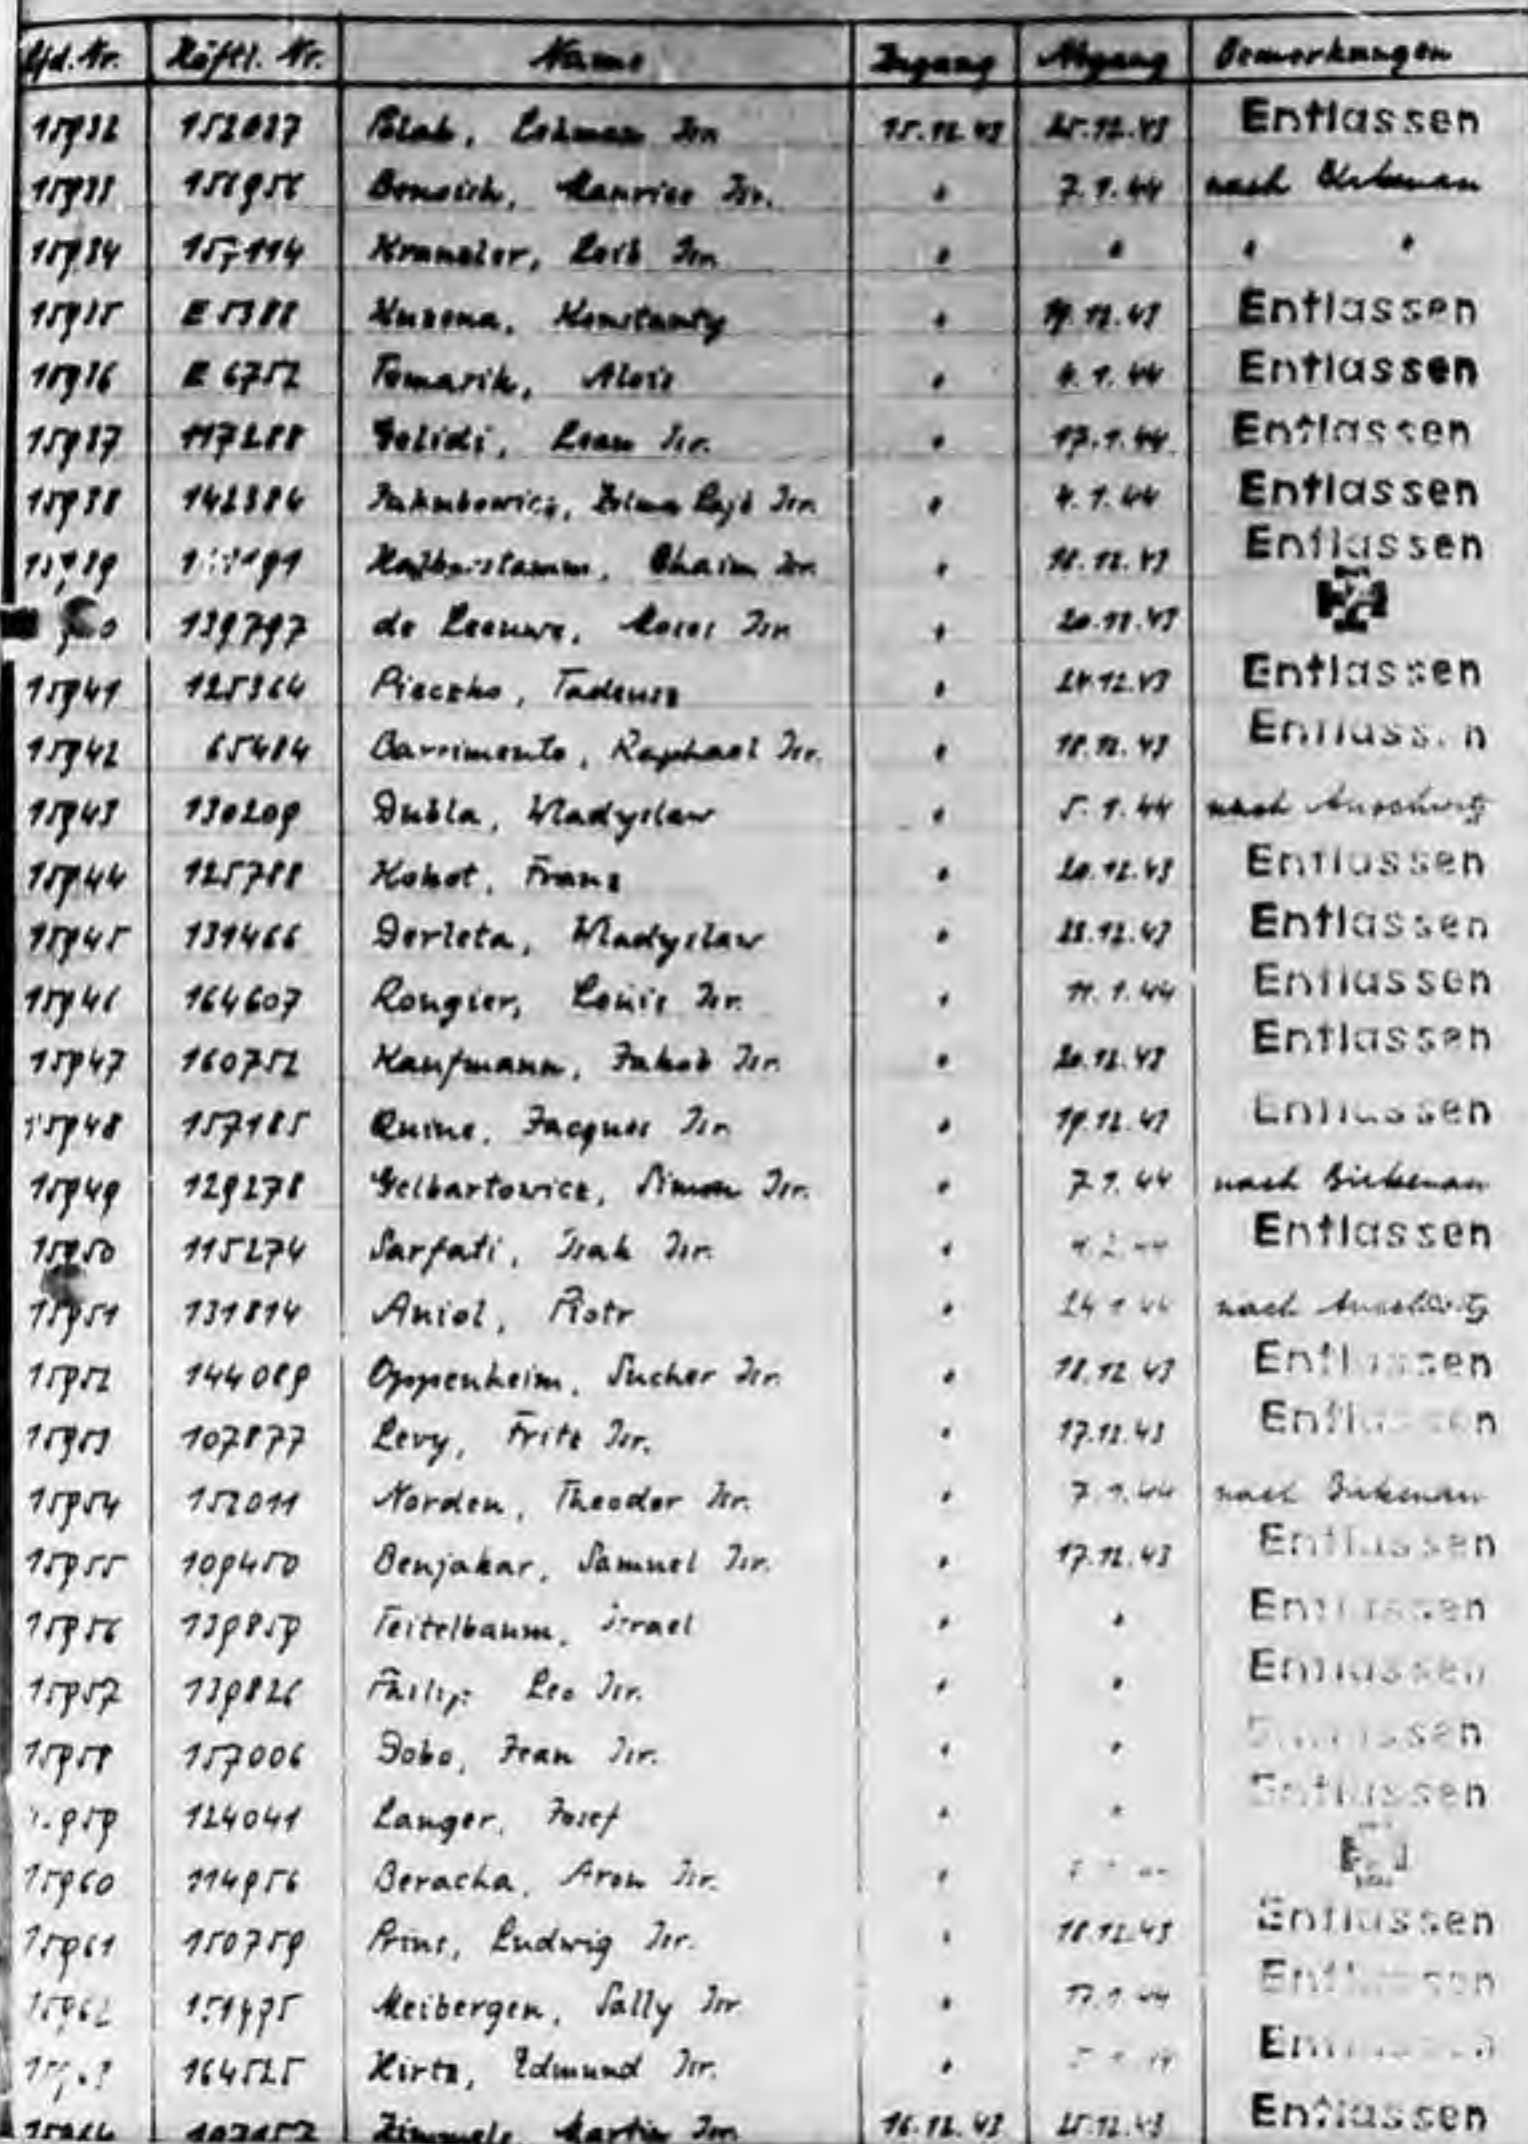 Lfd. Nr. Häftl. Nr. Name Zugang Abgang Bemerkungen
15932 152027 Isr. 15.12.43 25.12.43 Entlassen
15933 Maurice Isr. " 7.1.44 nach Birkenau
15934 157114 Kranzler, Leib Isr. " " " "
15935 E 5388 Konstanty " 19.12.43 Entlassen
15936 E 6752 Tomarik, Alois " 4.1.44 Entlassen
15937 117288 Gelidi, Isr. " 17.1.44 Entlassen
15938 142384 Jakubowicz, Isr. " 4.1.44 Entlassen
15939 Chaim Isr. " 18.12.43 Entlassen
139797 de Leeuwe, Moses Isr. " 20.12.43
15941 125364 Pieczko, Tadeusz " 24.12.43 Entlassen
15942 65484 Raphael Isr. " 18.12.43 Entlassen
15943 130209 Dubla, Wladyslaw " 5.1.44 nach Auschwitz
15944 125788 Kokot, Franz " 20.12.43 Entlassen
15945 131466 Derleta, Wladyslaw " 23.12.43 Entlassen
15946 164607 Rougier, Louis Isr. " 11.1.44 Entlassen
15947 160752 Kaufmann, Jakob Isr. " 20.12.43 Entlassen
15948 157185 Quine, Jacques Isr. " 19.12.43 Entlassen
15949 129278 Gelbartowicz, Simon Isr. " 7.1.44 nach Birkenau
15950 115274 Sarfati, Isak Isr. " Entlassen
15951 131814 Aniol, Piotr " 24.1.44 nach Auschwitz
15952 144089 Oppenheim, Sucher Isr. " 18.12.43 Entlassen
15953 107877 Levy, Fritz Isr. " 17.12.43 Entlassen
15954 152011 Norden, Theodor Isr. " 7.1.44 nach Birkenau
15955 109450 Benjakar, Samuel Isr. " 17.12.43 Entlassen
15956 139859 Teitelbaum, Israel " " Entlassen
15957 139826 Philip, Leo Isr. " " Entlassen
15958 157006 Dobo, Jean Isr. " " Entlassen
15959 124041 Langer, Josef " " Entlassen
15960 114956 Beracha, Aron Isr. "
15961 150759 Prins, Ludwig Isr. " 18.12.43 Entlassen
15962 151475 Meibergen, Sally Isr. " 17.1.44 Entlassen
164525 Hirtz, Edmund Isr. " Entlassen
15964 107152 Martin Isr. 16.12.43 25.12.43 Entlassen